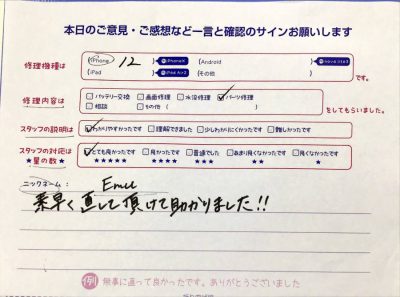 本日のご意見・ご感想など一言と確認のサインお願いします
修理機種は
iPhone 12 iPhoneX Android nova lite3
iPad iPad Air2 その他
です。
修理内容は
バッテリー交換 画面修理 水没修理 パーツ修理
相談 その他( )
をしてもらいました。
スタッフの説明は わかりやすかったです 理解できました 少しわかりにくかったです 難しかったです
スタッフの対応は とても良かったです 良かったです 普通でした あまり良くなかったです 良くなかったです
★星の数★ ★★★★★ ★★★★ ★★★ ★★ ★
ニックネーム: Emu
素早く直して頂けて助かりました!!
例 無事に直って良かったです。ありがとうございました